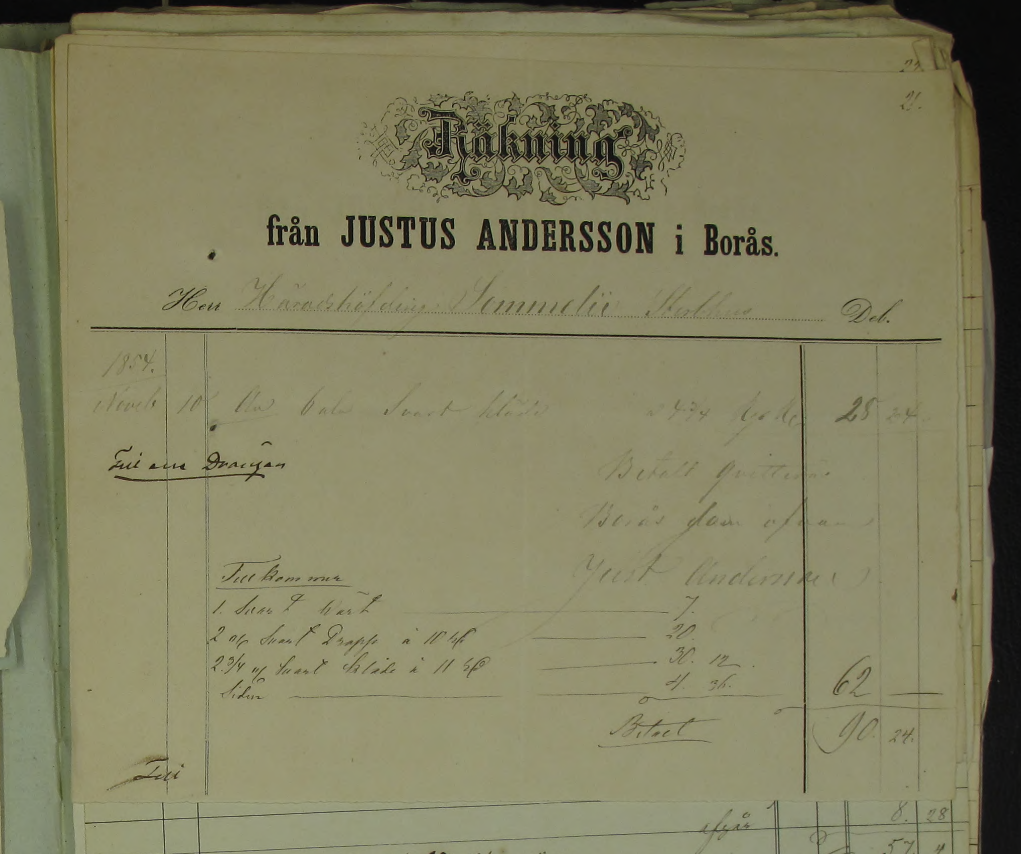 21.
Räkning
från JUSTUS ANDERSSON i Borås.
Herr Häradshöfding Sommelii Sterbhus Deb.
1854.
Novb 10 6 aln Svart kläde a 4 3/4 28 24
Till
Betalt qvitteras
Borås dato ofvan
Just Andersson
Tillkommer
1. Svart Wäst 7.
2 al Svart Drapp à 10 20
2 3/4 al Svart Kläde à 11 30. 12
Siden 4 36. 62
Betalt 90. 24.
Till
afgår 8. 28
57